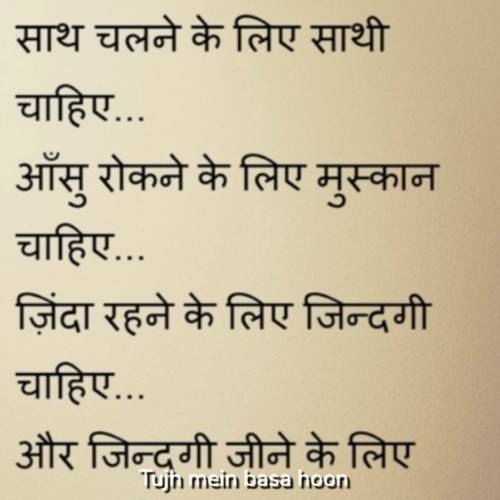 साथ चलने के लिए साथी
चाहिए...
आँसु रोकने के लिए मुस्कान
चाहिए...
ज़िंदा रहने के लिए जिन्दगी
चाहिए...
और जिन्दगी जीने के लिए
Tujh mein basa hoon